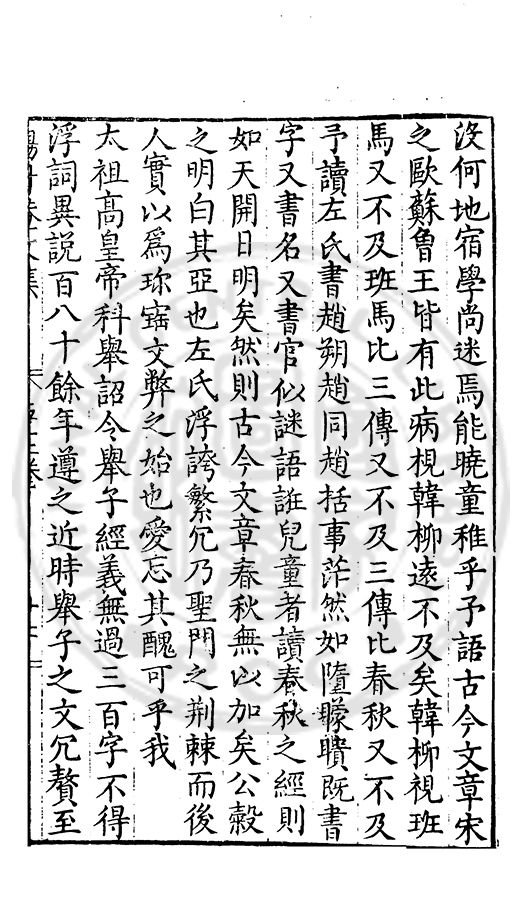 沒何地宿學尚迷焉能曉童稚乎予語古今文章宋
之歐蘇魯王皆有此病視韓柳遠不及矣韓柳視班
馬又不及班馬比三傳又不及三傳比春秋又不及
予讀左氏書趙朔趙同趙括事茫然如墮矇瞶既書
字又書名又書官似謎語誑兒童者讀春秋之經則
如天開日明矣然則古今文章春秋無以加矣公穀
之明白其亞也左氏浮誇繁冗乃聖門之荆棘而後
人實以爲珎寳文弊之始也愛忘其醜可乎我
太祖高皇帝科舉詔令舉子經義無過三百字不得
浮詞異説百八十餘年遵之近時舉子之文冗贅至